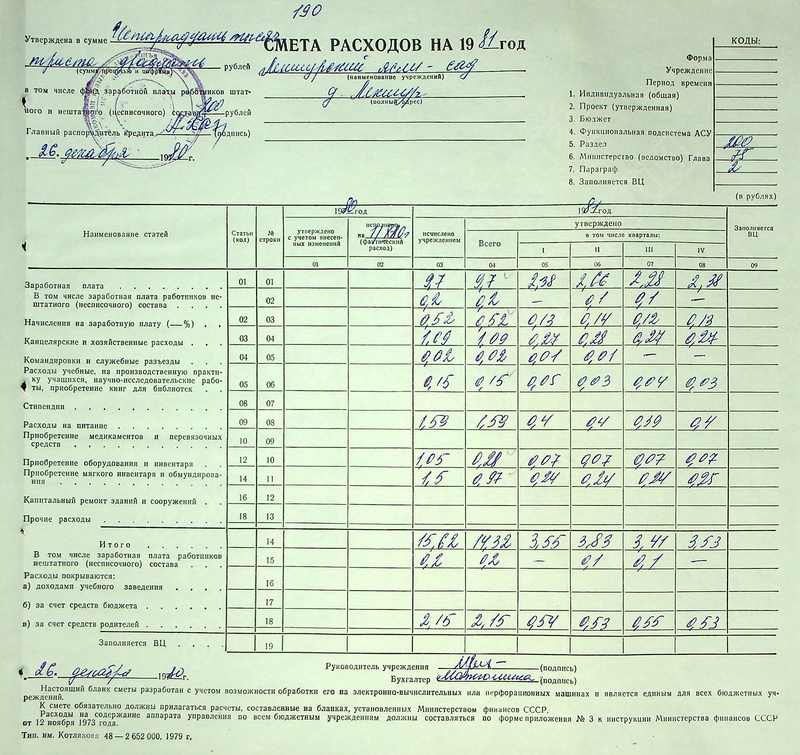 190
Утверждена в сумме Четырнадцать тысяч
триста двадцать рублей
(сумма прописью и цифрами)
в том числе фонд заработной платы работников штат-
ного и нештатного (несписочного) состава 200 рублей
Главный распорядитель кредита (подпись)
„ 26. декабря 1980 г.
СМЕТА РАСХОДОВ НА 1981 год
Лекшурский ясли-сад
(наименование учреждений)
д. Лекшур
(полный адрес)
КОДЫ:
Форма
Учреждение
Период времени
1. Индивидуальная (общая)
2. Проект (утвержденная)
3. Бюджет
4. Функциональная подсистема АСУ
5. Раздел 200
6. Министерство (ведомство) Глава 75
7. Параграф 2
8. Заполняется ВЦ
(в рублях)
Наименование статей
Статьи (код)
№ строки
1980 год
утверждено с учетом внесен- ных изменений
исполнено на 1/XII 80г (фактический расход)
исчислено учреждением
1981 год
утверждено
Всего
в том числе кварталы:
I II III IV
Заполняется ВЦ
01 02 03 04 05 06 07 08 09
Заработная плата 01 01 9,7 9,7 2,38 2,66 2,28 2,38
В том числе заработная плата работников не-
штатного (несписочного) состава 02 0,2 0,2 — 0,1 0,1 —
Начисления на заработную плату (—%) 02 03 0,52 0,52 0,13 0,14 0,12 0,13
Канцелярские и хозяйственные расходы 03 04 1,09 1,09 0,27 0,28 0,27 0,27
Командировки и служебные разъезды 04 05 0,02 0,02 0,01 0,01 — —
Расходы учебные, на производственную практи-
ку учащихся, научно-исследовательские рабо-
ты, приобретение книг для библиотек 05 06 0,15 0,15 0,05 0,03 0,04 0,03
Стипендии 08 07
Расходы на питание 09 08 1,59 1,59 0,4 0,4 0,39 0,4
Приобретение медикаментов и перевязочных
средств 10 09
Приобретение оборудования и инвентаря 12 10 1,05 0,28 0,07 0,07 0,07 0,07
Приобретение мягкого инвентаря и обмундирова-
ния 14 11 1,5 0,97 0,24 0,24 0,24 0,25
Капитальный ремонт зданий и сооружений 16 12
Прочие расходы 18 13
Итого 14 15,62 14,32 3,55 3,83 3,41 3,53
В том числе заработная плата работников
нештатного (несписочного) состава 15 0,2 0,2 — 0,1 0,1 —
Расходы покрываются:
а) доходами учебного заведения 16
б) за счет средств бюджета 17
в) за счет средств родителей 18 2,15 2,15 0,54 0,53 0,55 0,53
Заполняется ВЦ 19
„ 26. декабря 1980 г.
Руководитель учреждения (подпись)
Бухгалтер (подпись)
Настоящий бланк сметы разработан с учетом возможности обработки его на электронно-вычислительных или перфорационных машинах и является единым для всех бюджетных уч-
реждений.
К смете обязательно должны прилагаться расчеты, составленные на бланках, установленных Министерством финансов СССР.
Расходы на содержание аппарата управления по всем бюджетным учреждениям должны составляться по форме приложения № 3 к инструкции Министерства финансов СССР
от 12 ноября 1973 года.
Тип. им. Котлякова 48—2 652 000, 1979 г.